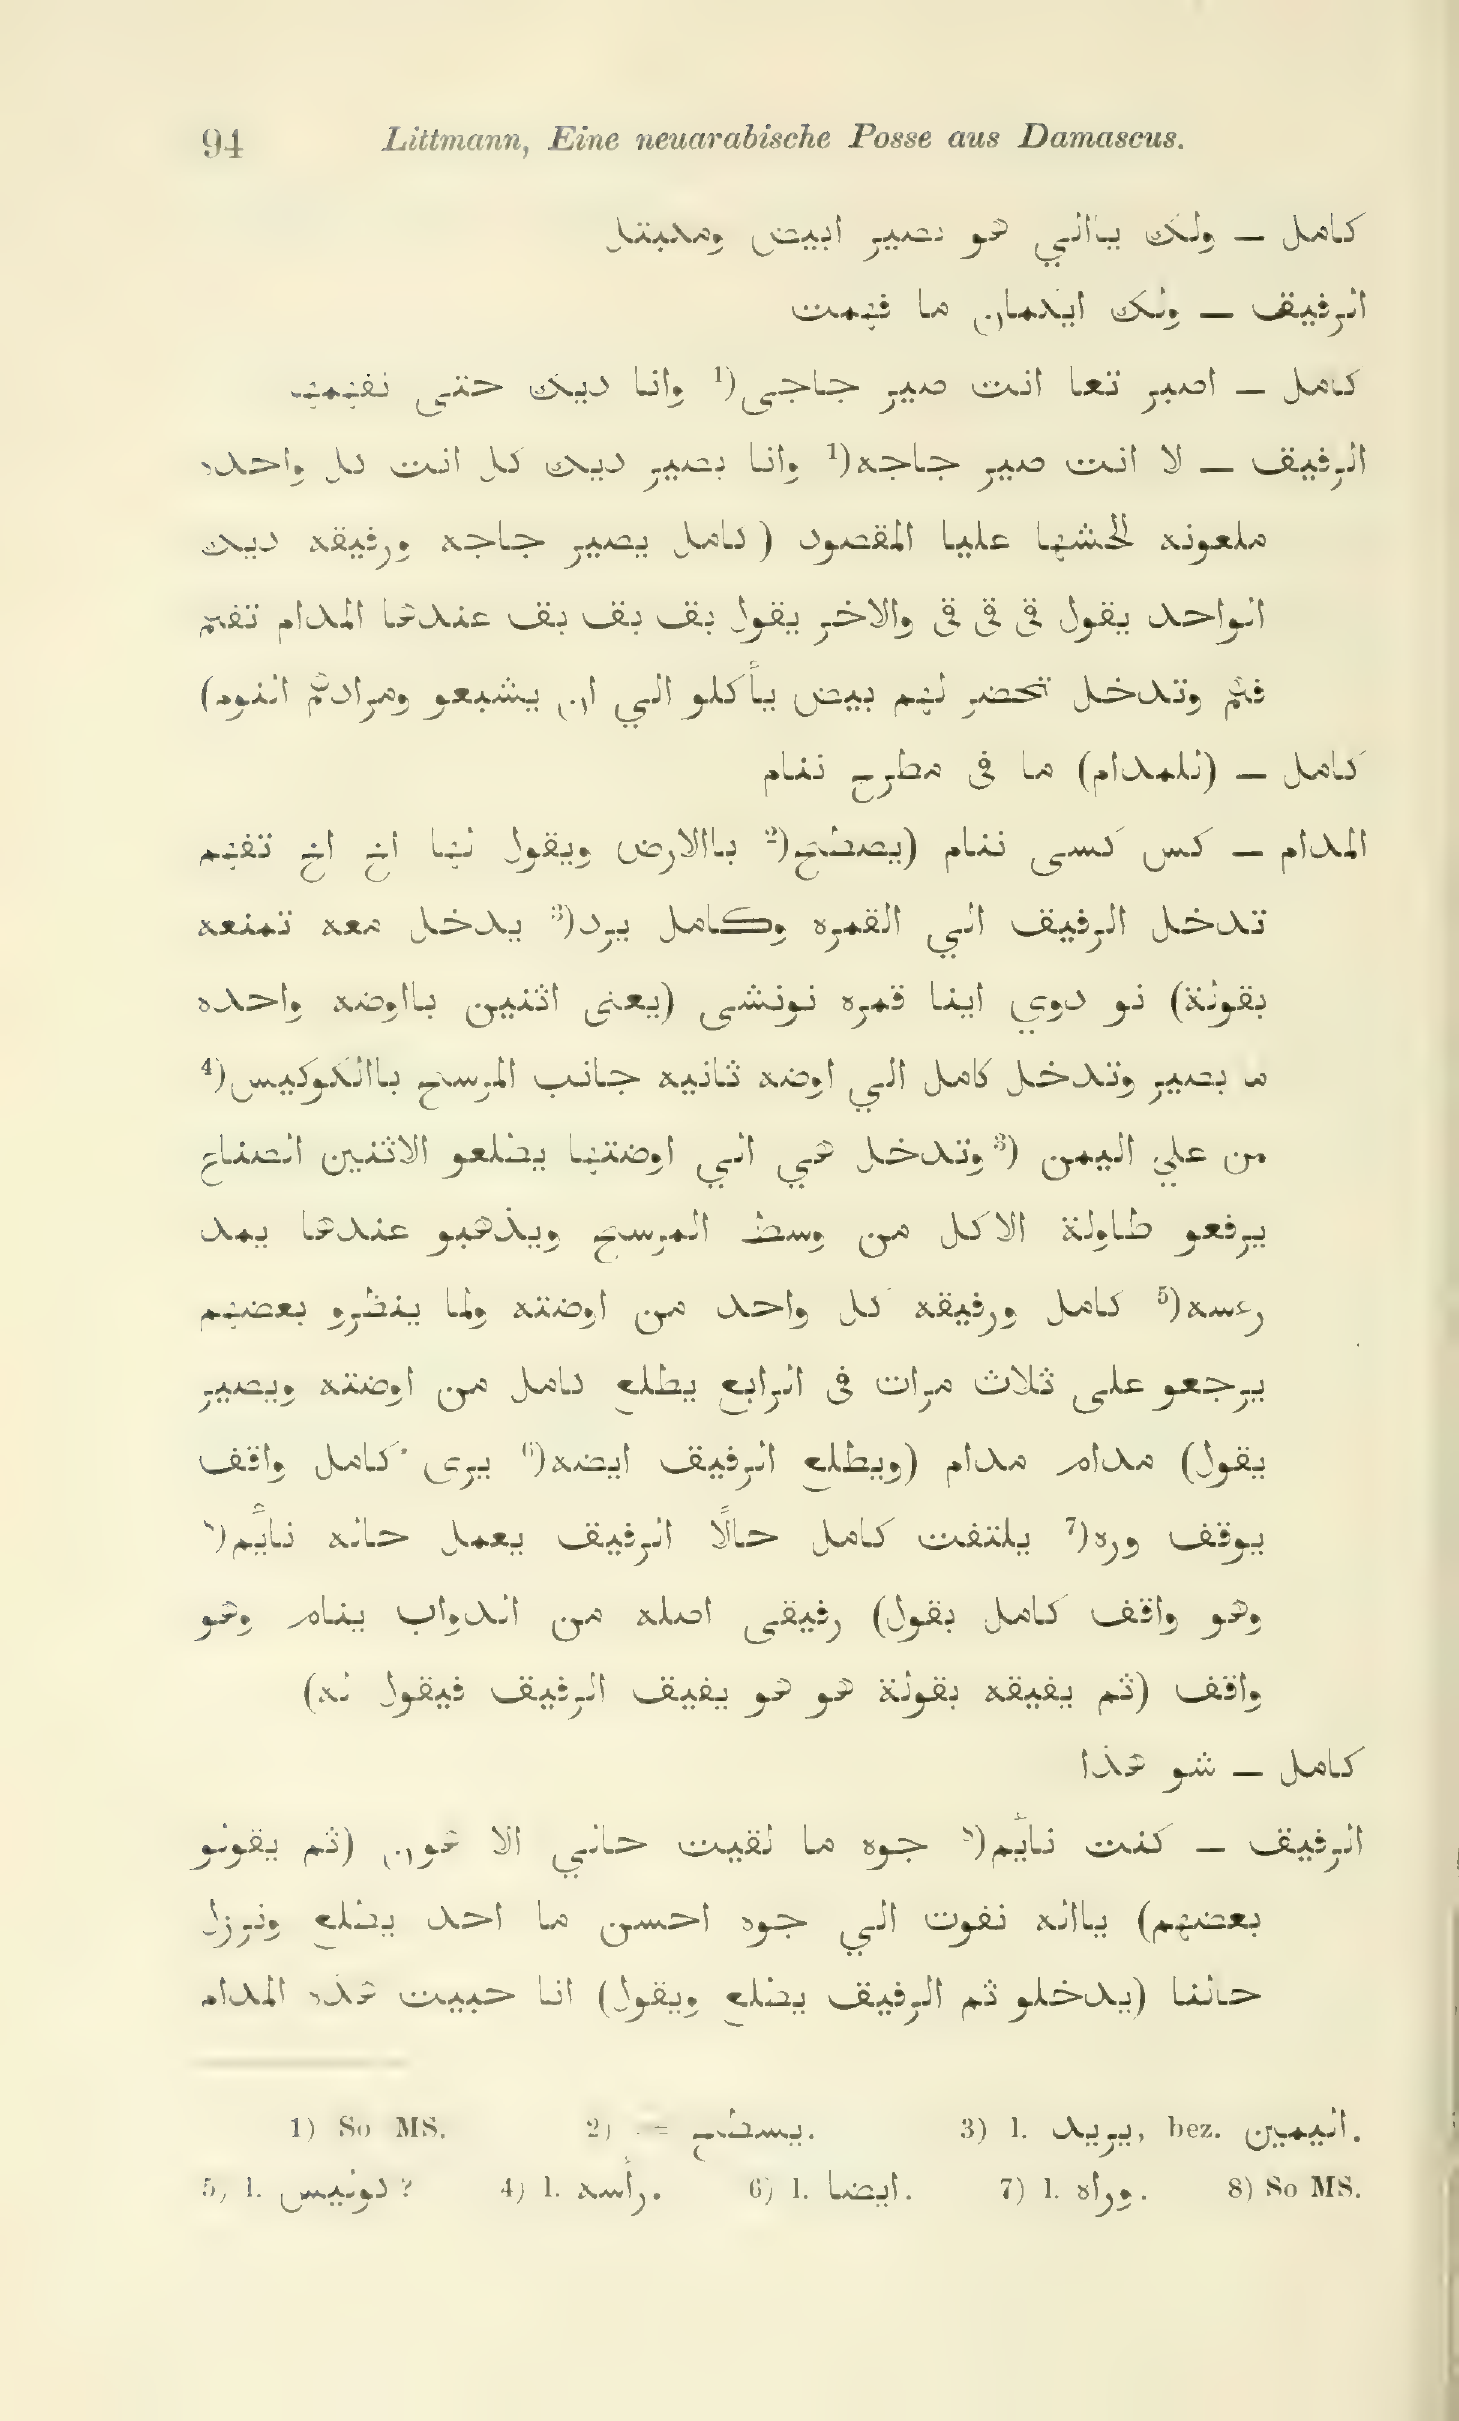 94 Littmann, Eine neuarabische Posse aus Damascus.
كامل — ولك ياالي هو بصير ابيض ومدبتل
الرفيق — ولك ايدمان ما فهمت
كامل — اصبر تعا انت صير جاجى(1 وانا ديك حتى نفهمها
الرفيق — لا انت صير جاجه(1 وانا بصير ديك كل انت كل واحده
ملعونه لخشها عليا المقصود (كامل يصير جاجه ورفيقه ديك
الواحد يقول قى قى قى والاخر يقول بق بق بق عندها المدام تفهم
فهم وتدخل تحضر لهم بيض يأكلو الي ان يشبعو ومرادهم النوم)
كامل — (للمدام) ما فى مطرح ننام
المدام — كس كسى ننام (يصطح(2 باالارض ويقول لها اخ اخ تفهم
تدخل الرفيق الي القمره وكامل يرد(3 يدخل معه تمنعه
بقولة) نو دوي اينا قمره نونشى (يعنى اثنين بااوضه واحده
ما بصير وتدخل كامل الي اوضه ثانيه جانب المرسح باالكوكيس(4
من علي اليمن (3 وتدخل هي الي اوضتها يطلعو الاثنين الصناع
يرفعو طاولة الاكل من وسط المرسح ويذهبو عندها يمد
رءسه(5 كامل ورفيقه كل واحد من اوضته ولما ينظرو بعضهم
يرجعو على ثلاث مرات فى الرابع يطلع كامل من اوضته ويصير
يقول) مدام مدام (ويطلع الرفيق ايضه(6 يرى كامل واقف
يوقف وره(7 يلتفت كامل حالًا الرفيق يعمل حاله نائم(8
وهو واقف كامل بقول) رفيقى اصله من الدواب ينام وهو
واقف (ثم يفيقه بقولة هو هو يفيق الرفيق فيقول له)
كامل — شو هذا
الرفيق — كنت نائم(8 جوه ما لقيت حالي الا هون (ثم يقولو
بعضهم) ياالله نفوت الي جوه احسن ما احد يطلع ونرزل
حالنا (يدخلو ثم الرفيق يطلع ويقول) انا حبيت هذه المدام
1) So MS. 2) = يسطح. 3) l. يريد, bez. اليمين.
5) l. دونيس? 4) l. رأسه. 6) l. ايضا. 7) l. وراه. 8) So MS.